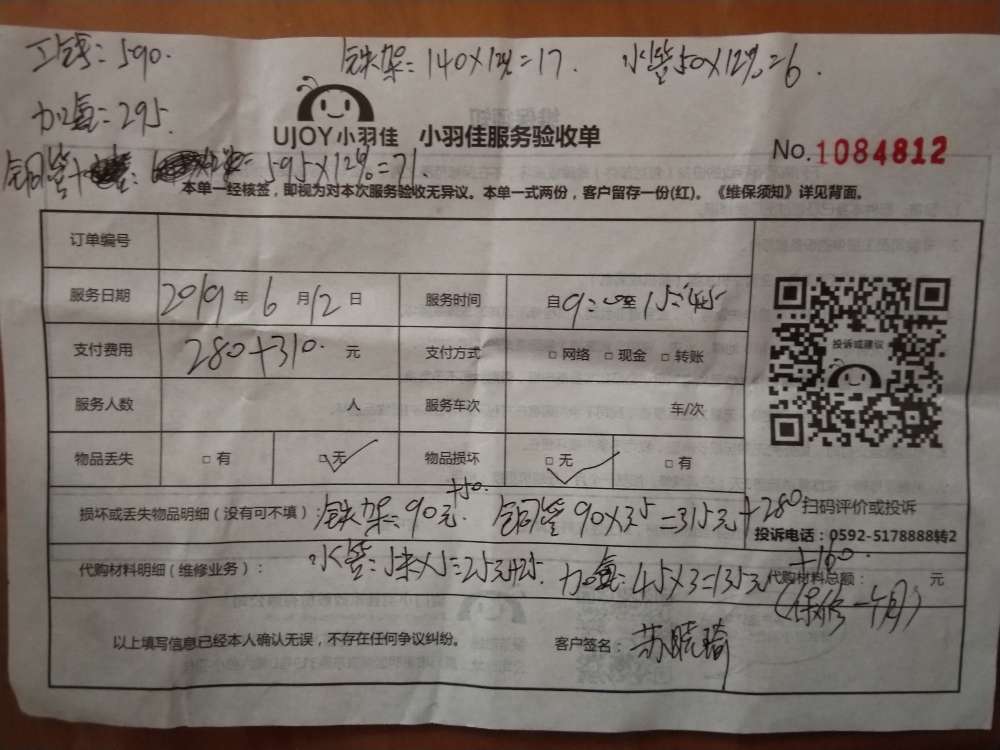 工钱:590.
铁架:140×12%=17. 水管50×12%=6.
加氟=295.
UJOY小羽佳 小羽佳服务验收单
No.1084812
铜管+ =595×12%=71.
本单一经核签，即视为对本次服务验收无异议。本单一式两份，客户留存一份(红)。《维保须知》详见背面。
订单编号
服务日期 2019 年 6 月 12 日 服务时间 自 9:00 至 15:45
投诉或建议
支付费用 280+310. 元 支付方式 □ 网络 □ 现金 □ 转账
服务人数 人 服务车次 车/次
物品丢失 □ 有 □ 无 ✓ 物品损坏 □ 无 ✓ □ 有
损坏或丢失物品明细（没有可不填）: 铁架:90元+50. 铜管90×3.5=315元+280
扫码评价或投诉
投诉电话：0592-5178888转2
代购材料明细（维修业务）: 水管:5米×5=25元+25. 加氟:45×3=135元+160.
代购材料总额: 元
(保修一个月)
以上填写信息已经本人确认无误，不存在任何争议纠纷。 客户签名: 苏晓琦